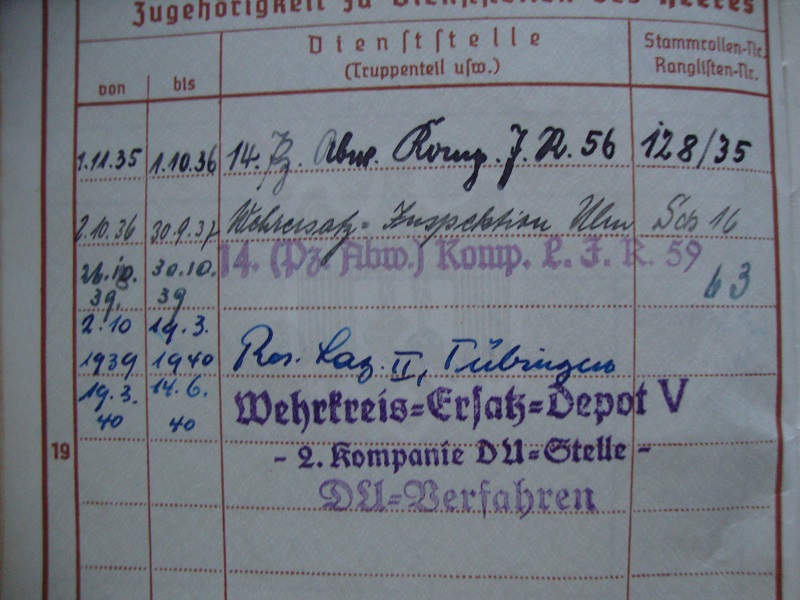 Zugehörigkeit zu Dienststellen des Heeres
von bis Dienststelle Stammrollen-Nr.
(Truppenteil usw.) Ranglisten-Nr.
1.11.35 1.10.36 14. Pz. Abw. Komp. J. R. 56 128/35
2.10.36 30.9.37 Wehrersatz-Inspektion Ulm
30.10. 14. (Pz. Abw.) Komp. L. J. R. 59 63
39. 39
2.10 19.3.
1939 1940 Res. Laz. II, Tübingen
19.3. 14.6. Wehrkreis=Ersatz=Depot V
40 40
- 2. Kompanie DU=Stelle -
19
DU=Verfahren